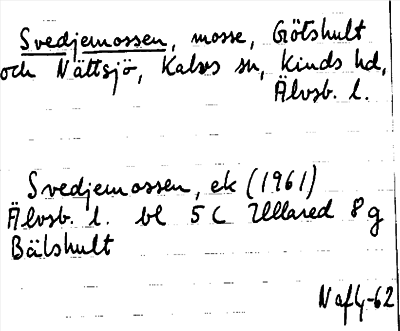 Svedjemossen, mosse, Götshult
och Nättsjö, Kalvs sn, Kinds hd,
Älvsb. l.
Svedjemossen, ek (1961)
Älvsb. l. bl 5 C Ullared 8 g
Bälshult